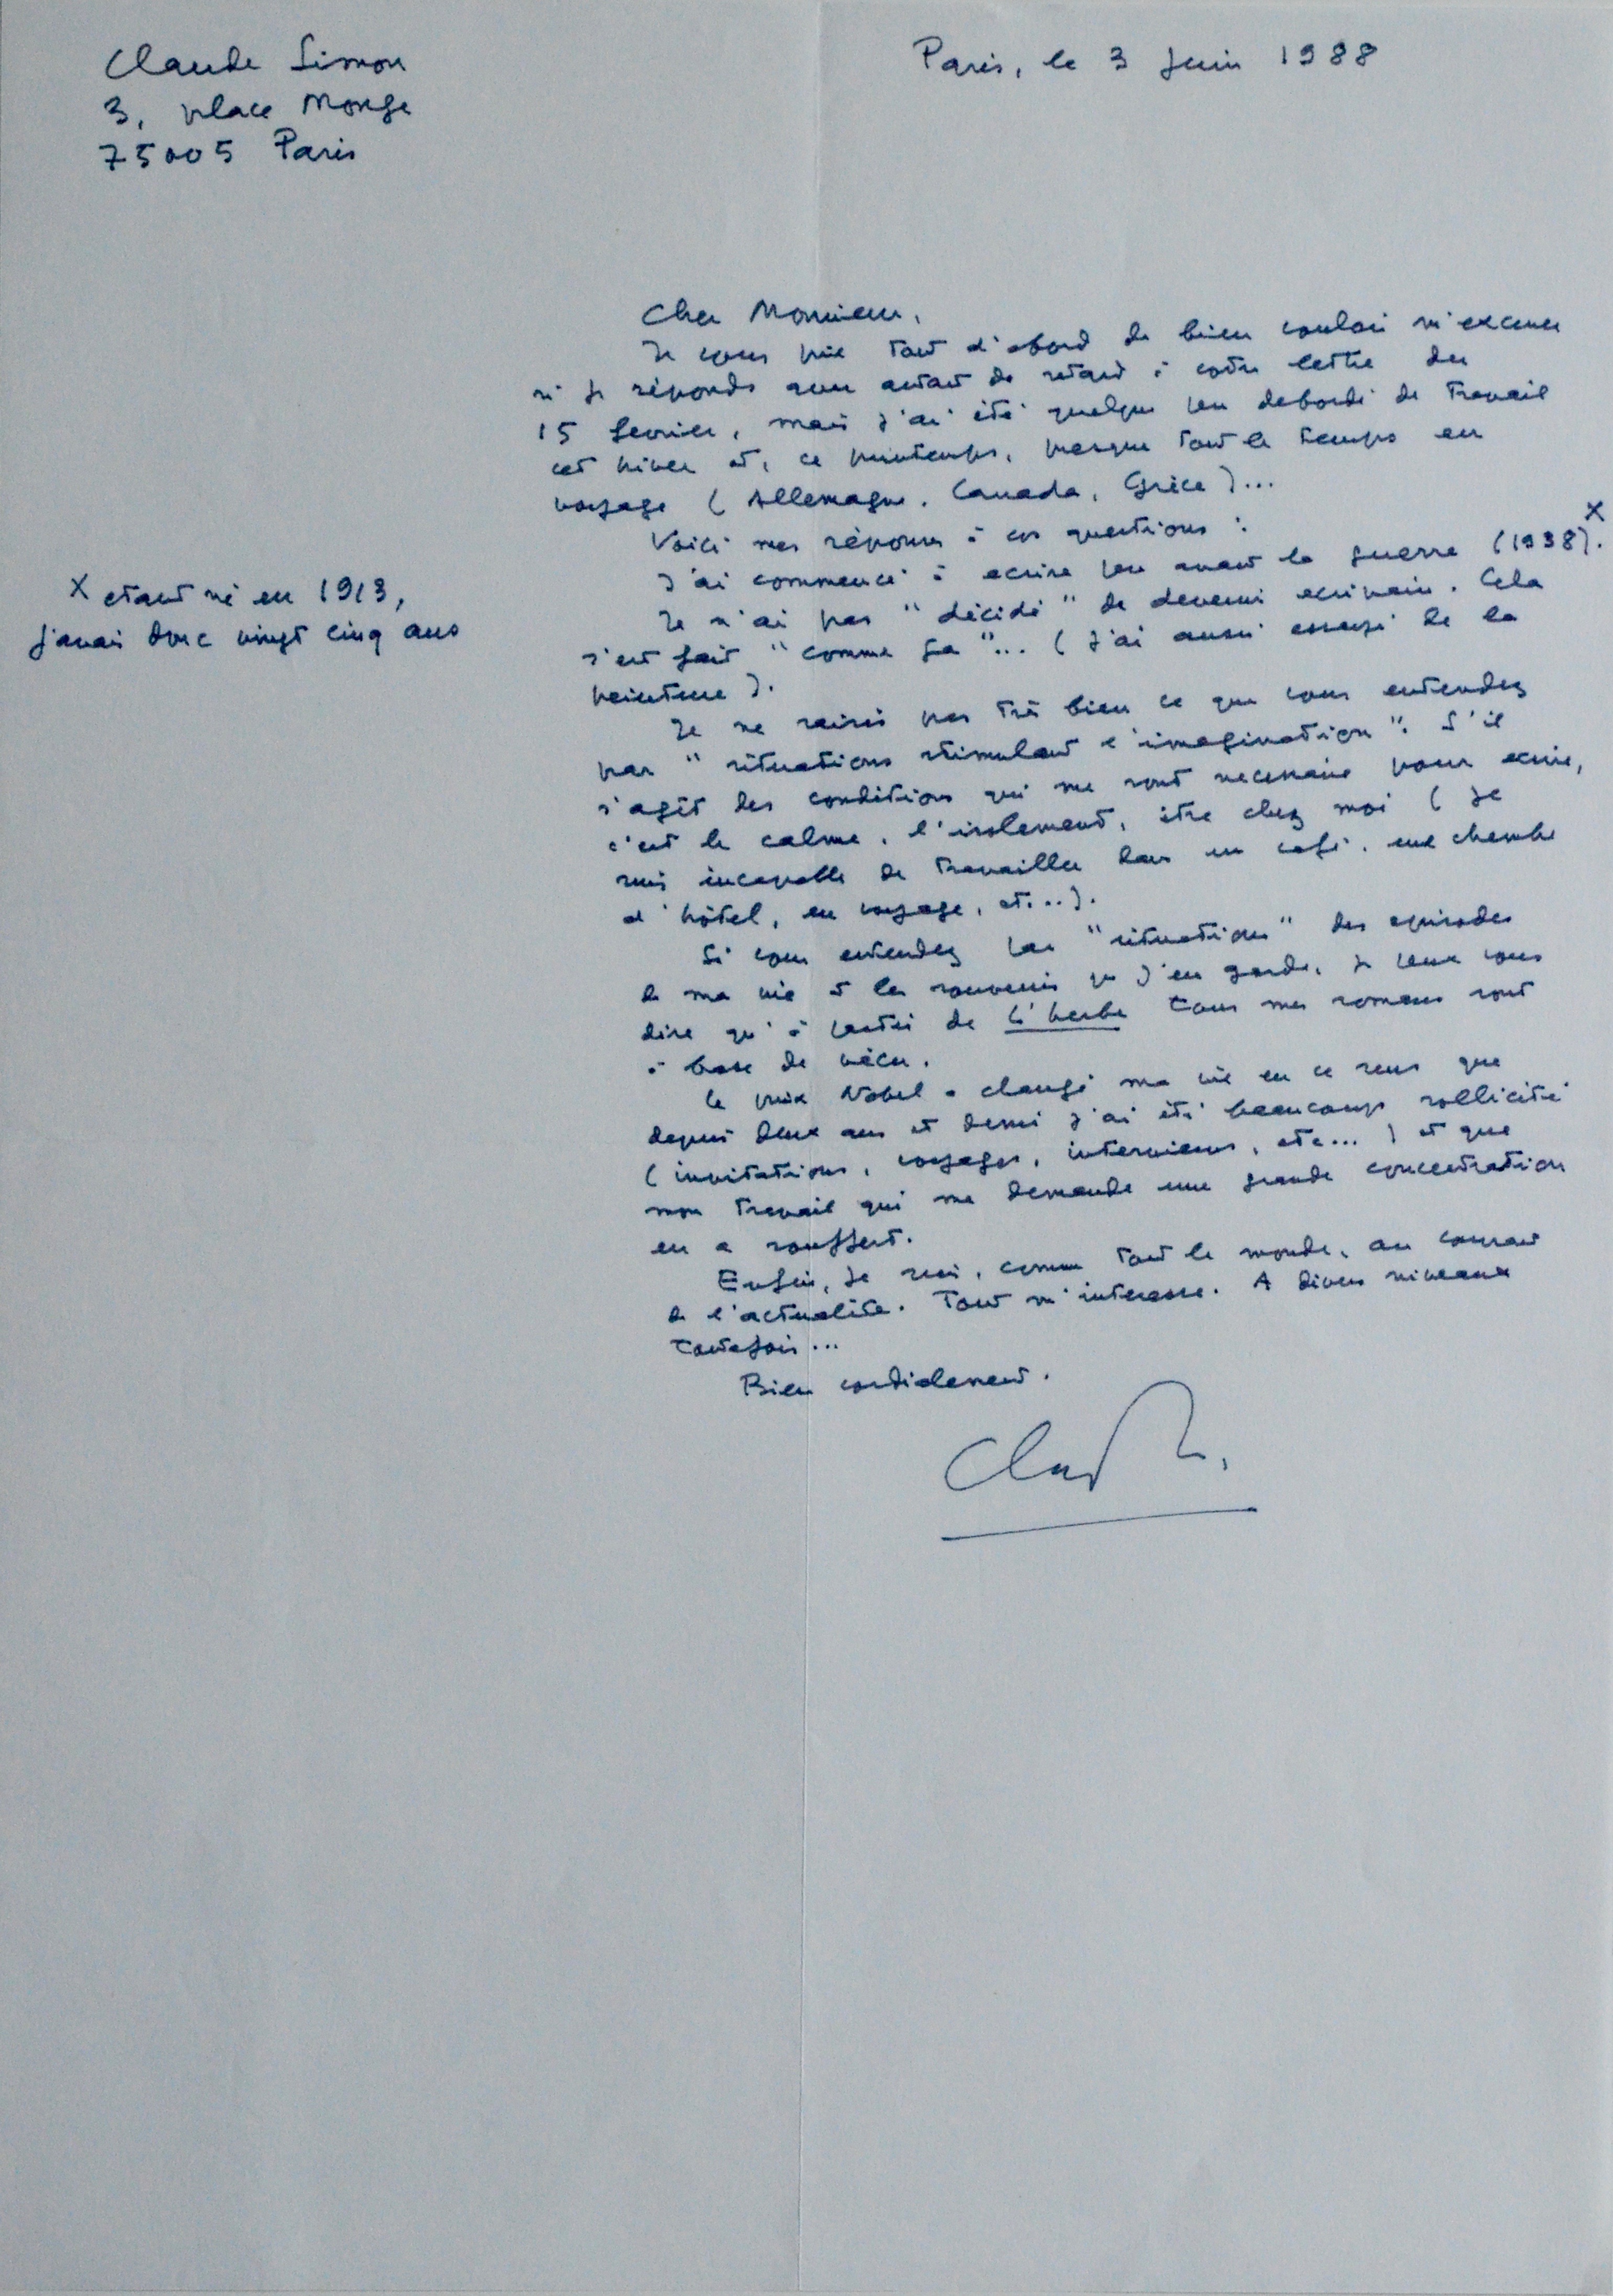 Claude Simon
3, place Monge
75005 Paris
Paris, le 3 Juin 1988
Cher Monsieur,
Je vous prie tout d'abord de bien vouloir m'excuser
si je réponds avec autant de retard à votre lettre du
15 fevrier, mais j'ai été quelque peu debordé de travail
cet hiver et, ce printemps, presque tout le temps en
voyage (Allemagne, Canada, Grèce)...
Voici mes réponses à vos questions :
J'ai commencé à ecrire peu avant la guerre (1938). X
X etant né en 1913,
j'avais donc vingt cinq ans
Je n'ai pas "décidé" de devenir ecrivain. Cela
s'est fait "comme ça"... (j'ai aussi essayé de la
peinture).
Je ne saisis pas très bien ce que vous entendez
par "situations stimulant l'imagination". S'il
s'agit des conditions qui me sont necessaire pour ecrire,
c'est le calme, l'isolement, être chez moi (je
suis incapable de travailler dans un café, une chambre
d'hôtel, en voyage, et...).
Si vous entendez par "situations" des episodes
de ma vie et les souvenirs que j'en garde, je peux vous
dire qu'à partir de L'herbe tous mes romans sont
à base de vécu.
Le prix Nobel a changé ma vie en ce sens que
depuis deux ans et demi j'ai été beaucoup sollicité
(invitations, voyages, interviews, etc...) et que
mon travail qui me demande une grande concentration
en a souffert.
Enfin, je suis, comme tout le monde, au courant
de l'actualité. Tout m'interesse. A divers niveaux
toutefois...
Bien cordialement.